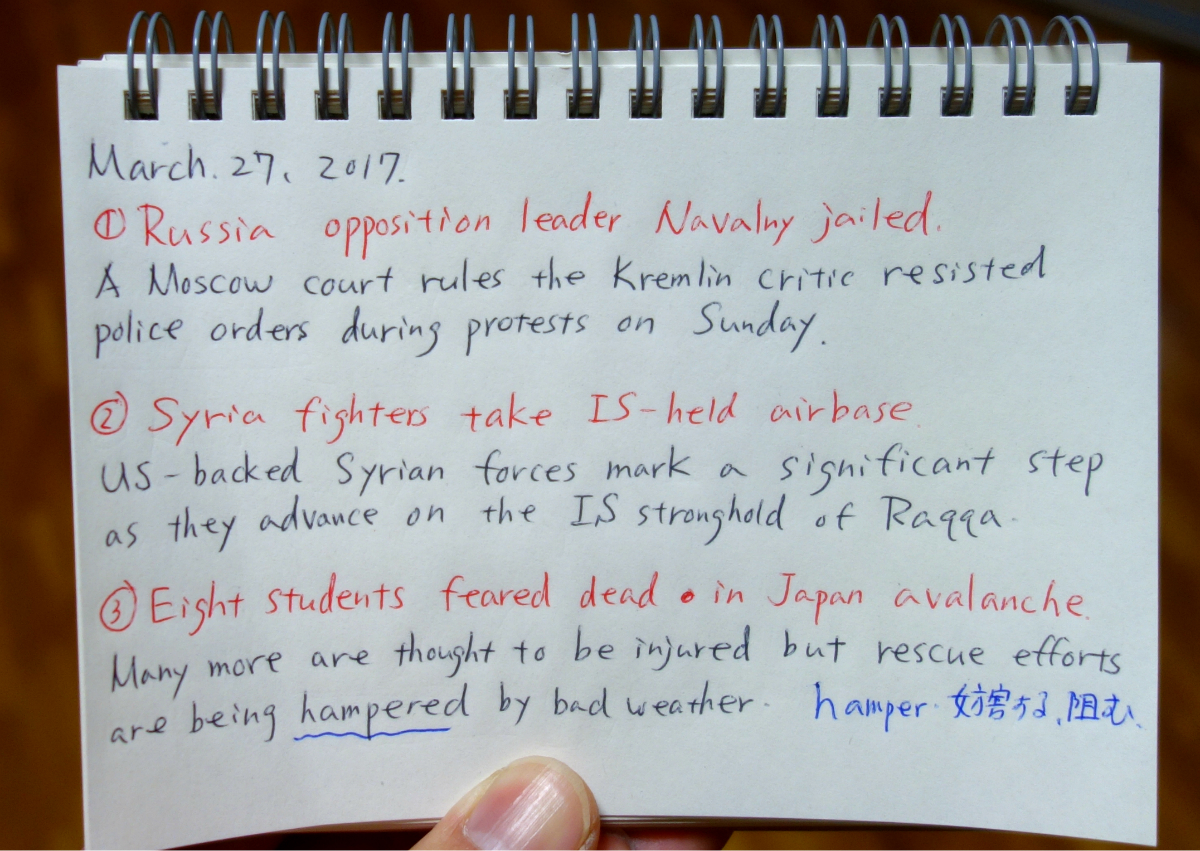 March. 27, 2017.
① Russia opposition leader Navalny jailed.
A Moscow court rules the Kremlin critic resisted
police orders during protests on Sunday.
② Syria fighters take IS-held airbase.
US-backed Syrian forces mark a significant step
as they advance on the IS stronghold of Raqqa.
③ Eight students feared dead • in Japan avalanche.
Many more are thought to be injured but rescue efforts
are being hampered by bad weather. hamper. 妨害する、阻む、